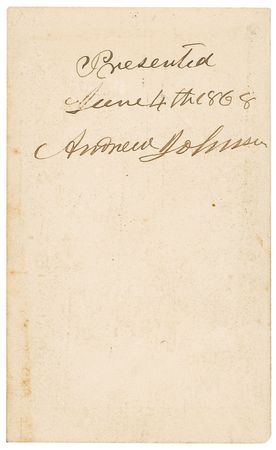 Presented
June 4th 1868
Andrew Johnson